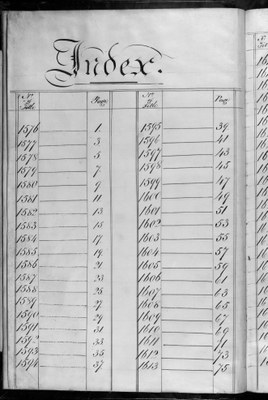 Index.
No. Page No. Page
1576 1. 1595 39
1577 3 1596 41
1578 5 1597 43
1579 7 1598 45
1580 9 1599 47
1581 11 1600 49
1582 13 1601 51
1583 15 1602 53
1584 17 1603 55
1585 19 1604 57
1586 21 1605 59
1587 23 1606 61
1588 25 1607 63
1589 27 1608 65
1590 29 1609 67
1591 31 1610 69
1592 33 1611 71
1593 35 1612 73
1594 37 1613 75